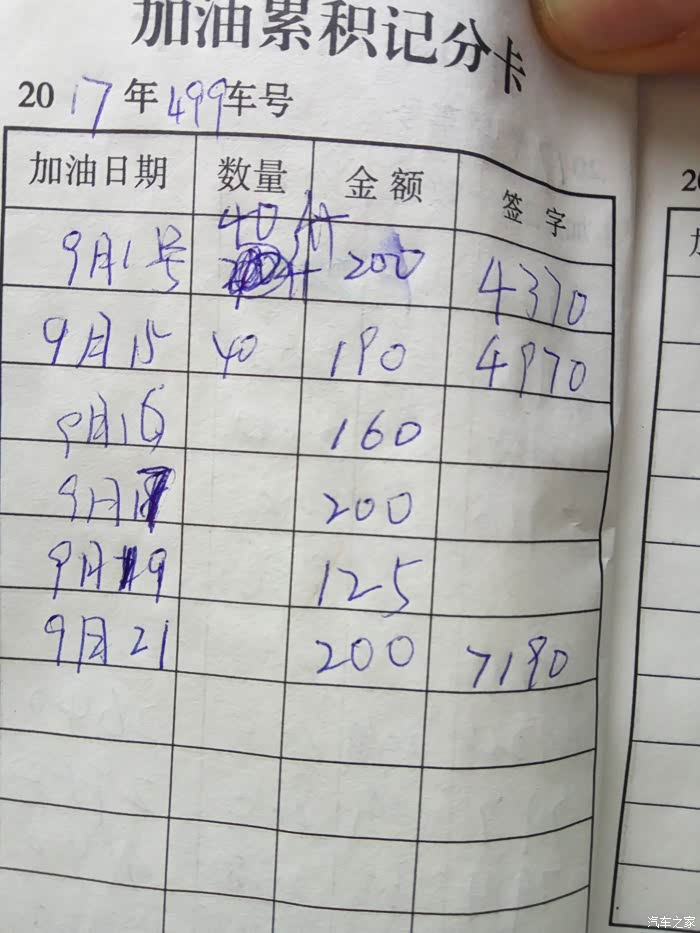 加油累积记分卡
2017年499车号
加油日期 数量 金额 签字
9月1号 40升 200 4370
9月15 40 190 4970
9月16 160
9月17 200
9月19 125
9月21 200 7190
20
汽车之家